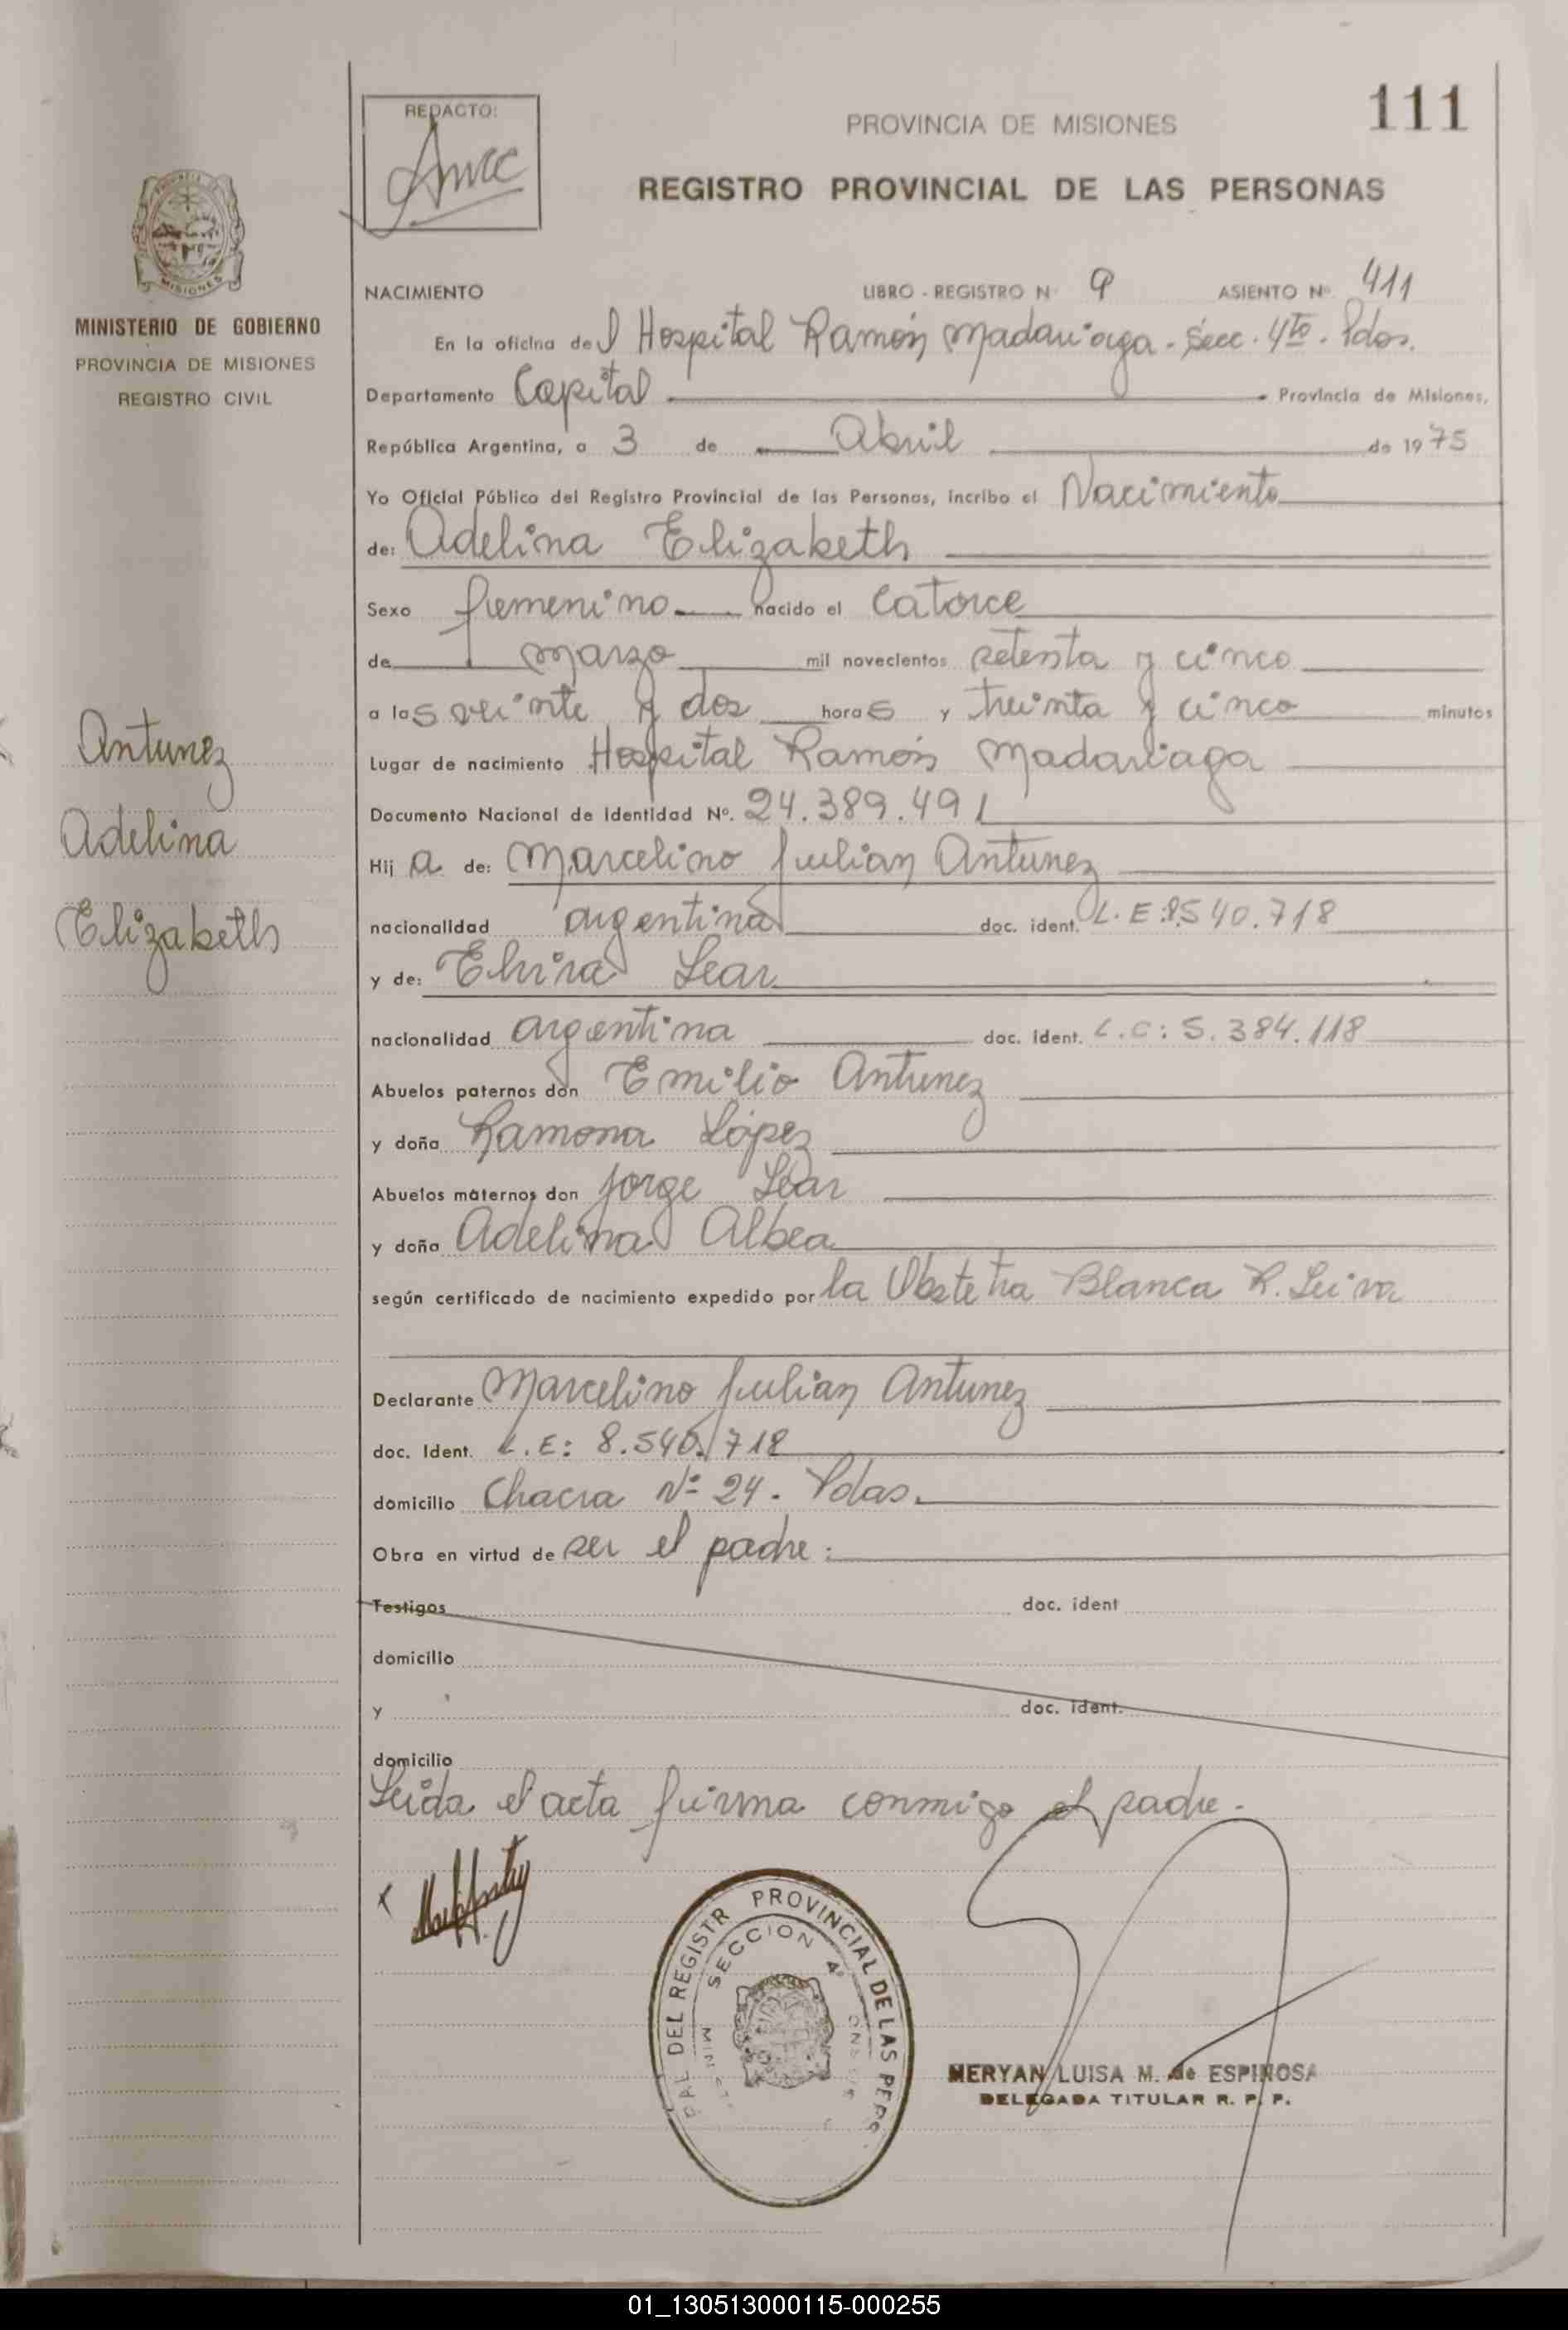 REDACTO:
PROVINCIA DE MISIONES
111
REGISTRO PROVINCIAL DE LAS PERSONAS
MISIONES
MINISTERIO DE GOBIERNO
PROVINCIA DE MISIONES
REGISTRO CIVIL
NACIMIENTO LIBRO - REGISTRO Nº 9 ASIENTO Nº 411
En la oficina del Hospital Ramón Madariaga - Secc. 4to. Pdas.
Departamento Capital Provincia de Misiones,
República Argentina, a 3 de Abril de 1975
Yo Oficial Público del Registro Provincial de las Personas, incribo el Nacimiento
de: Adelina Elizabeth
Sexo femenino nacido el catorce
de marzo mil novecientos setenta y cinco
a las veinte y dos horas y treinta y cinco minutos
Lugar de nacimiento Hospital Ramón Madariaga
Documento Nacional de Identidad Nº. 24.389.491
Hij a de: Marcelino Julian Antunez
nacionalidad argentina doc. ident. L.E: 8.540.718
y de: Elvira Lear
nacionalidad argentina doc. ident. L.C: 5.384.118
Abuelos paternos don Emilio Antunez
y doña Ramona López
Abuelos maternos don Jorge Lear
y doña Adelina Albea
según certificado de nacimiento expedido por la Obstetra Blanca R. Leiva
Declarante Marcelino Julian Antunez
doc. Ident. L.E: 8.540.718
domicilio Chacra Nº 24. Pdas.
Obra en virtud de ser el padre:
Testigos doc. ident
domicilio
y doc. ident.
domicilio
Leida el acta firma conmigo el padre.
Antunez
Adelina
Elizabeth
PROVINCIAL DE LAS PERS
DEL REGISTR
SECCION 4º
MERYAN LUISA M. de ESPINOSA
DELEGADA TITULAR R. P. P.
01_130513000115-000255